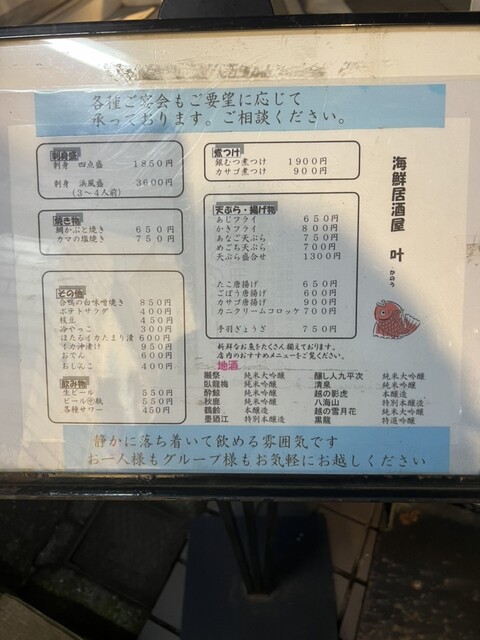 各種ご宴会もご要望に応じて
承っております。ご相談ください。
刺身盛
刺身 四点盛 1850円
刺身 浜風盛 3600円
(3～4人前)
焼き物
鯛かぶと焼き 650円
カマの塩焼き 750円
その他
合鴨の白味噌焼き 850円
ポテトサラダ 400円
枝豆 450円
冷やっこ 300円
ほたるイカたまり漬 600円
イカ沖漬け 950円
おでん 600円
おしんこ 400円
飲み物
生ビール 550円
ビール中瓶 550円
各種サワー 450円
煮つけ
銀むつ煮つけ 1900円
カサゴ煮つけ 900円
天ぷら・揚げ物
あじフライ 650円
かきフライ 800円
あなご天ぷら 750円
めごち天ぷら 700円
天ぷら盛合せ 1300円
たこ唐揚げ 650円
ごぼう唐揚げ 600円
カサゴ唐揚げ 900円
カニクリームコロッケ 700円
手羽ぎょうざ 750円
新鮮なお魚をたくさん揃えております。
店内のおすすめメニューをご覧ください。
地酒
獺祭 純米大吟醸
臥龍梅 純米吟醸
酔鯨 純米吟醸
秋鹿 純米吟醸
鶴齢 本醸造
墨廼江 特別本醸造
醸し人九平次 純米大吟醸
清泉 純米吟醸
越の影虎 本醸造
八海山 特別本醸造
越の雪月花 純米大吟醸
黒龍 特選吟醸
海鮮居酒屋 叶
かのう
静かに落ち着いて飲める雰囲気です
お一人様もグループ様もお気軽にお越しください